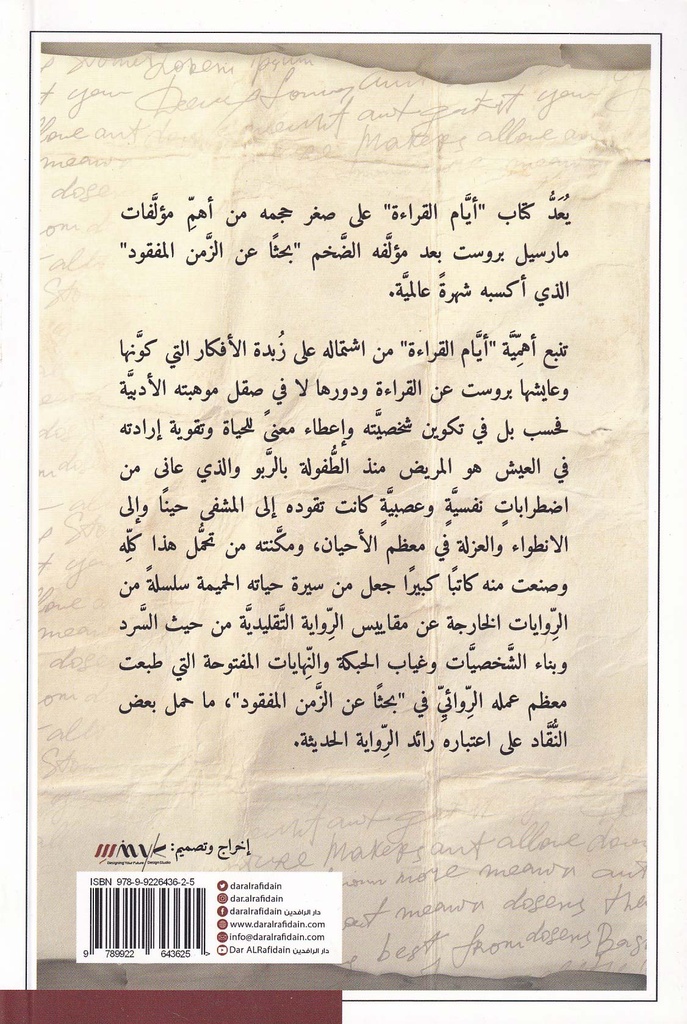 يُعَدُّ كتاب "أيَّام القراءة" على صغر حجمه من أهمِّ مؤلَّفات
مارسيل بروست بعد مؤلَّفه الضَّخم "بحثًا عن الزَّمن المفقود"
الذي أكسبه شهرةً عالميَّة.
تنبع أهمِّيَّة "أيَّام القراءة" من اشتماله على زُبدة الأفكار التي كوَّنها
وعايشها بروست عن القراءة ودورها لا في صقل موهبته الأدبيَّة
فحسب بل في تكوين شخصيَّته وإعطاء معنىً للحياة وتقوية إرادته
في العيش هو المريض منذ الطُّفولة بالرَّبو والذي عانى من
اضطراباتٍ نفسيَّةٍ وعصبيَّةٍ كانت تقوده إلى المشفى حينًا وإلى
الانطواء والعزلة في معظم الأحيان، ومكَّنته من تحمُّل هذا كلِّه
وصنعت منه كاتبًا كبيرًا جعل من سيرة حياته الحميمة سلسلةً من
الرِّوايات الخارجة عن مقاييس الرِّواية التَّقليديَّة من حيث السَّرد
وبناء الشَّخصيَّات وغياب الحبكة والنِّهايات المفتوحة التي طبعت
معظم عمله الرِّوائيِّ في "بحثًا عن الزَّمن المفقود"، ما حمل بعض
النُّقَّاد على اعتباره رائد الرِّواية الحديثة.
إخراج وتصميم:
Designing Your Future Design Studio
ISBN 978-9-9226436-2-5
9 789922 643625
daralrafidain
dar.alrafidain
daralrafidain دار الرافدين
www.daralrafidain.com
info@daralrafidain.com
Dar ALRafidain دار الرافدين